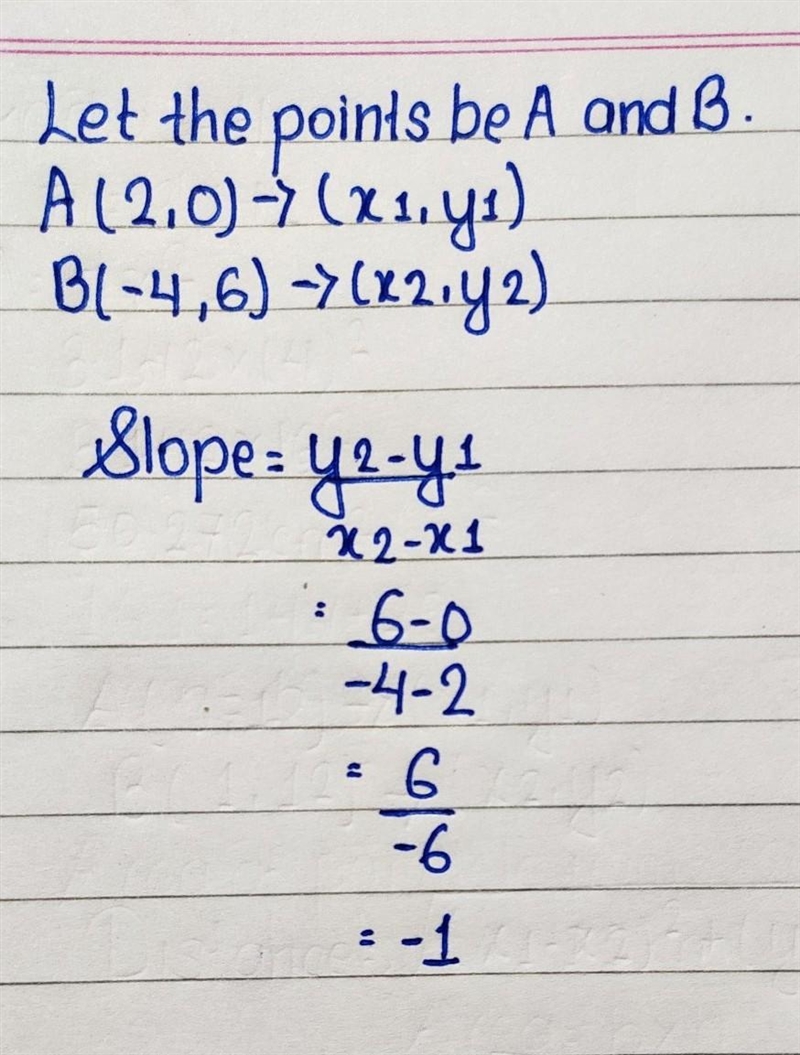 Let the points be A and B.
A(2,0)→(x1,y1)
B(-4,6)→(x2,y2)
Slope=y2-y1
x2-x1
= 6-0
-4-2
= 6
-6
= -1